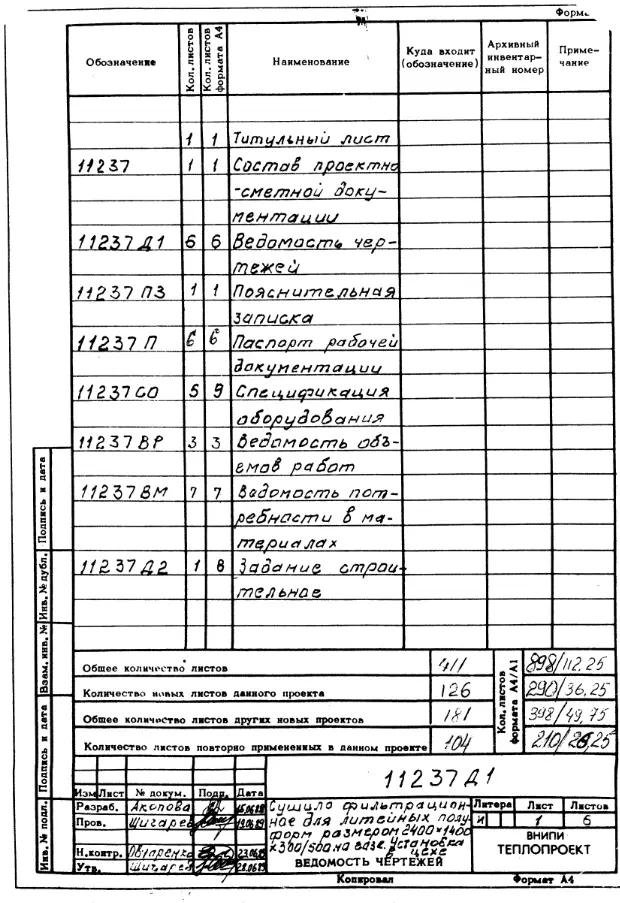 Форма
Обозначение Кол. листов Кол. листов формата А4 Наименование Куда входит (обозначение) Архивный инвентарный номер Примечание
1 1 Титульный лист
11237 1 1 Состав проектно
-сметной доку-
ментации
11237 Д1 6 6 Ведомость чер-
тежей
11237 ПЗ 1 1 Пояснительная
записка
11237 П 6 6 Паспорт рабочей
документации
11237 СО 5 9 Спецификация
оборудования
11237 ВР 3 3 Ведомость объ-
емов работ
11237 ВМ 7 7 Ведомость пот-
ребности в ма-
териалах
11237 Д2 1 8 Задание строи-
тельное
Общее количество листов 411 898/112.25
Количество новых листов данного проекта 126 290/36,25
Общее количество листов других новых проектов 181 398/49,75
Количество листов повторно примененных в данном проекте 104 210/26,25
Кол. листов формата А4/А1
11237 Д1
Изм Лист № докум. Подп. Дата
Разраб. Акопова
Пров. Шигарев
Н.контр. Овчаренко 23.06.89
Утв. Шигарев
Сушило фильтрацион-
ное для литейных полу-
форм размером 2400×1400
×300/500 на газе. Установка
в цехе
ВЕДОМОСТЬ ЧЕРТЕЖЕЙ
Литера Лист Листов
И 1 6
ВНИПИ
ТЕПЛОПРОЕКТ
Копировал Формат А4
Инв. № подл. Подпись и дата Взам. инв. № Инв. № дубл. Подпись и дата